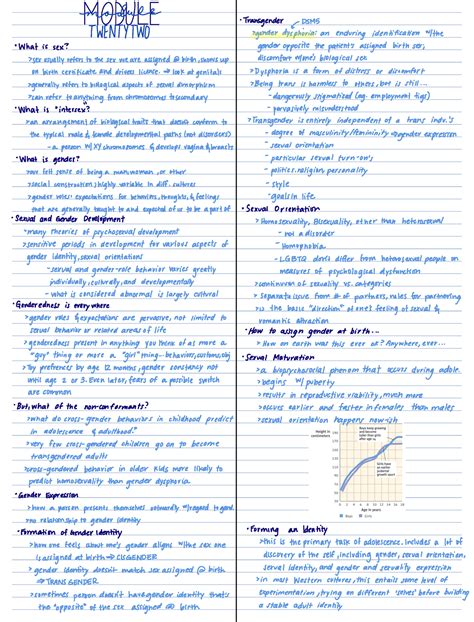 MODULE
TWENTYTWO
• What is sex?
> sex usually refers to the sex we are assigned @ birth, shows up
on birth certificate and drivers license → look at genitals
> generally refers to biological aspects of sexual dimorphism
> can refer to anything from chromosomes to secondary
• What is "intersex?
> an arrangement of biological traits that doesn't conform to
the typical male & female developmental paths (not disorders)
- a person w/ XY chromosomes & develops vagina & breasts
• What is gender?
> our felt sense of being a man, woman, or other
> social construction; highly variable in diff. cultures
> gender roles: expectations for behaviors, thoughts, & feelings
that are generally taught to and expected of us to be a part of
• Sexual and Gender Development
> many theories of psychosexual development
> sensitive periods in development for various aspects of
gender identity, sexual orientations
- sexual and gender-role behavior varies greatly
individually, culturally, and developmentally
- what is considered abnormal is largely cultural
• Genderedness is everywhere
> gender roles & expectations are pervasive, not limited to
sexual behavior or related areas of life
> genderedness present in anything you think of as more a
"guy" thing or more a "girl" thing - behaviors, customs, obj
> Toy preferences by age 12 months, gender constancy not
until age 2 or 3. Even later, fears of a possible switch
are common
• But, what of the non-conformants?
- what do cross-gender behaviors in childhood predict
in adolescence & adulthood?
> very few cross-gendered children go on to become
transgendered adults
> cross-gendered behavior in older kids more likely to
predict homosexuality than gender dysphoria.
• Gender Expression
> how a person presents themselves outwardly w/ regard to gend
> no relationship to gender identity
• Formation of Gender Identity
> how one feels about gender aligns w/ the sex one
is assigned at birth ⇒ CISGENDER
> gender identity doesn't match sex assigned @ birth
⇒ TRANSGENDER
> sometimes person doesn't have gender identity that's
the "opposite" of the sex assigned @ birth
• Transgender
DSM5
> gender dysphoria: an enduring identification w/ the
gender opposite the patient's assigned birth sex,
discomfort w/ one's biological sex
> Dysphoria is a form of distress or discomfort
> Being trans is harmless to others, but is still...
- dangerously stigmatized (ng. employment tigs)
- pervasively misunderstood
> Transgender is entirely independent of a trans indv.'s
- degree of masculinity/femininity → gender expression
- sexual orientation
- particular sexual turn 'on's;
- politics, religion, personality
- style
- goals in life
• Sexual Orientation
> Homosexuality, Bisexuality, other than heterosexual
- not a disorder
- homophobia
- LGBTQ don't differ from heterosexual people on
measures of psychological dysfunction
> continuum of sexuality vs. categories
> separate issue from # of partners, rules for partnering
> is the basic "direction" of one's feeling of sexual &
romantic attraction
• How to assign gender at birth...
> How on earth was this ever ok? Anywhere, ever...
• Sexual Maturation
> a biopsychosocial phenom that occurs during adole.
> begins w/ puberty
> results in reproductive viability, much more
> occurs earlier and faster in females than males
> sexual orientation happens now-ish
Height in
centimeters
Age in years
Boys
Girls
• Forming an Identity
> this is the primary task of adolescence. Includes a lot of
discovery of the self, including gender, sexual orientation,
sexual identity, and gender and sexuality expression
> in most Western cultures, this entails some level of
experimentation, trying on different 'selves' before building
a stable adult identity